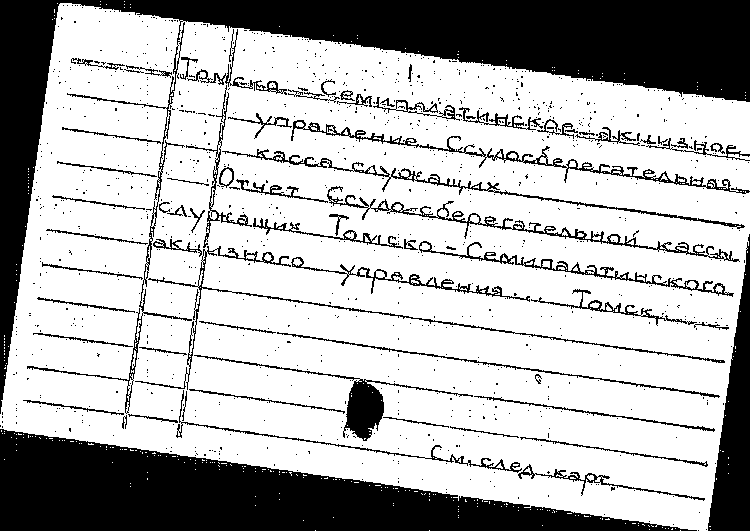 1.
Томско - Семипалатинское акцизное
управление. Ссудосберегательная
касса служащих.
Отчет Ссудо-сберегательной кассы
служащих Томско - Семипалатинского
акцизного управления... Томск,
См. след. карт.